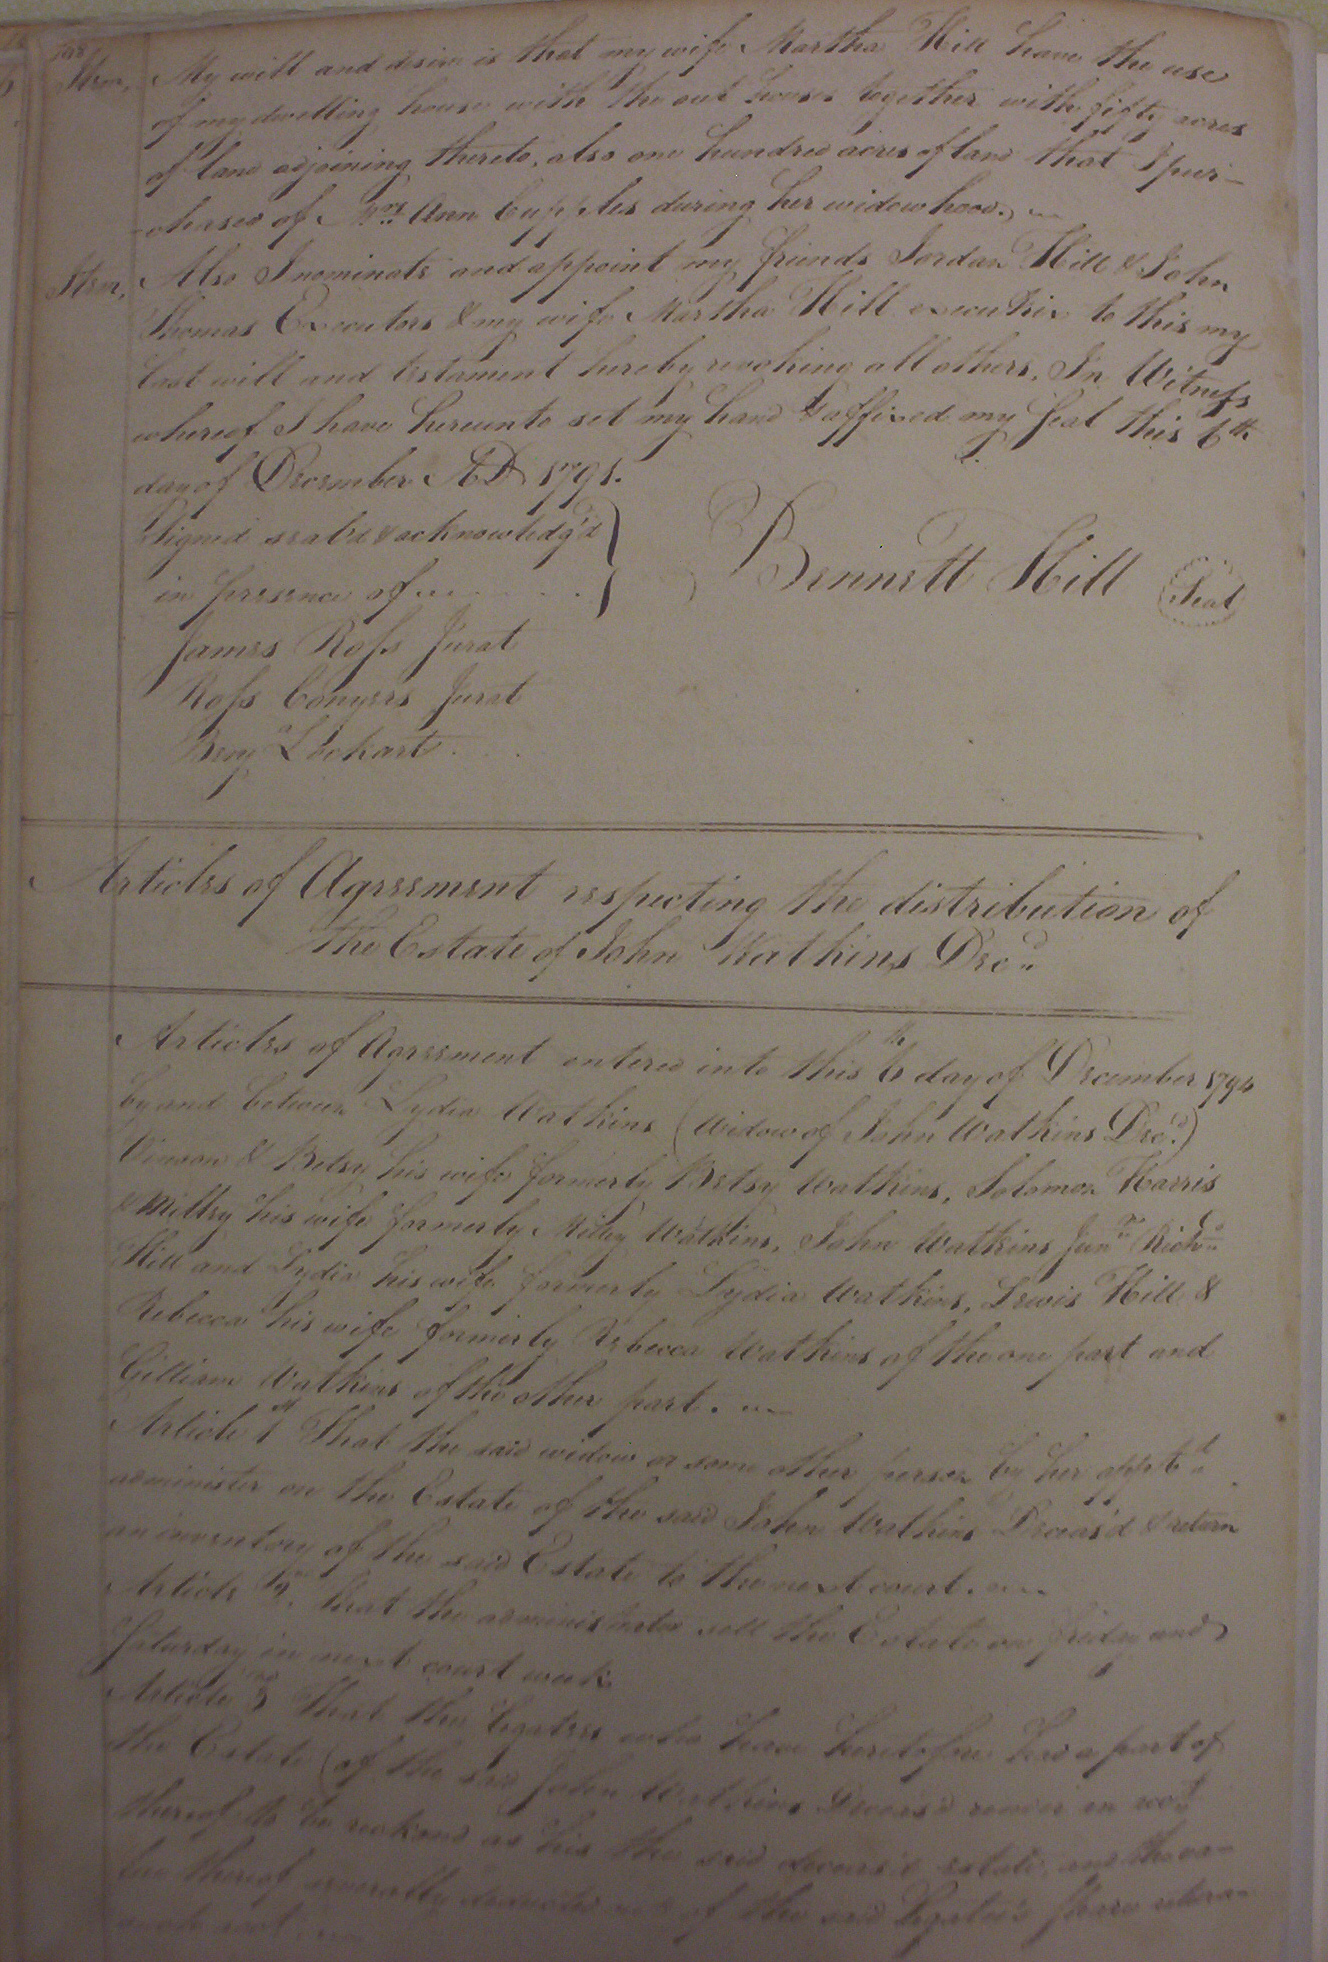 Item, My will and desire is that my wife Martha Hill have the use
of my dwelling house with the out houses together with fifty acres
of land adjoining thereto, also one hundred acres of land that I pur-
-chased of Mrs Ann Cupples during her widowhood.
Item, Also I nominate and appoint my friends Jordan Hill & John
Thomas Executors & my wife Martha Hill executrix to this my
last will and testament hereby revoking all others. In Witness
whereof I have hereunto set my hand & affixed my seal this 6th
day of December AD 1791.
Signed seal'd & acknowledg'd
in presence of
Bennett Hill Seal
James Ross Jurat
Ross Conyers Jurat
Benj Lockart
Articles of Agreement respecting the distribution of
the Estate of John Watkins Decd
Articles of Agreement entered into this 6th day of December 1794
by and between Lydia Watkins (Widow of John Watkins Decd)
Vinson & Betsy his wife formerly Betsy Watkins, Solomon Harris
& Milley his wife formerly Milley Watkins, John Watkins Junr Richd
Hill and Lydia his wife formerly Lydia Watkins, Lewis Hill &
Rebecca his wife formerly Rebecca Watkins of the one part and
Gilliam Watkins of the other part.
Article 1st That the said widow or some other person by her apptd
administer on the Estate of the said John Watkins Deceas'd & return
an inventory of the said Estate to the next court.
Article That the administrator sell the Estate on friday and
Saturday in next court week
Article 3rd That the legatees who have heretofore had a part of
the Estate (of the said John Watkins Deceas'd render an acct
thereof to be reckoned as his the said deceas'd estate, and the va-
lue thereof severally deducted out of the said Legatee's share